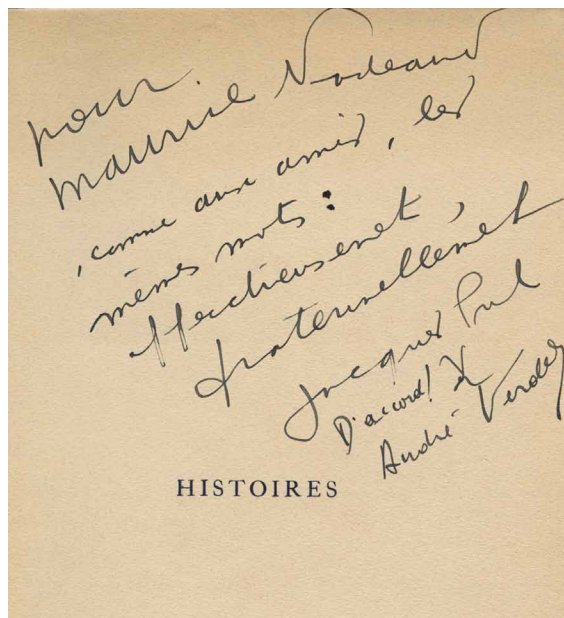 pour
Maurice Nadeau
, comme aux amis, les
mêmes mots :
affectueusement,
fraternellement
Jacques
D'accord!
André Verdet
HISTOIRES